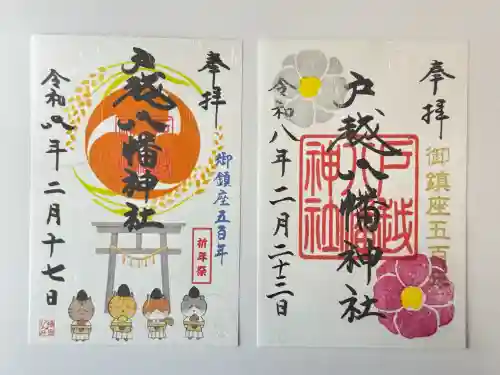 奉拝
戸越八幡神社
御鎮座五百年
祈年祭
令和八年二月十七日
奉拝
御鎮座五百
戸越八幡神社
戸越八幡神社
令和八年二月二十三日